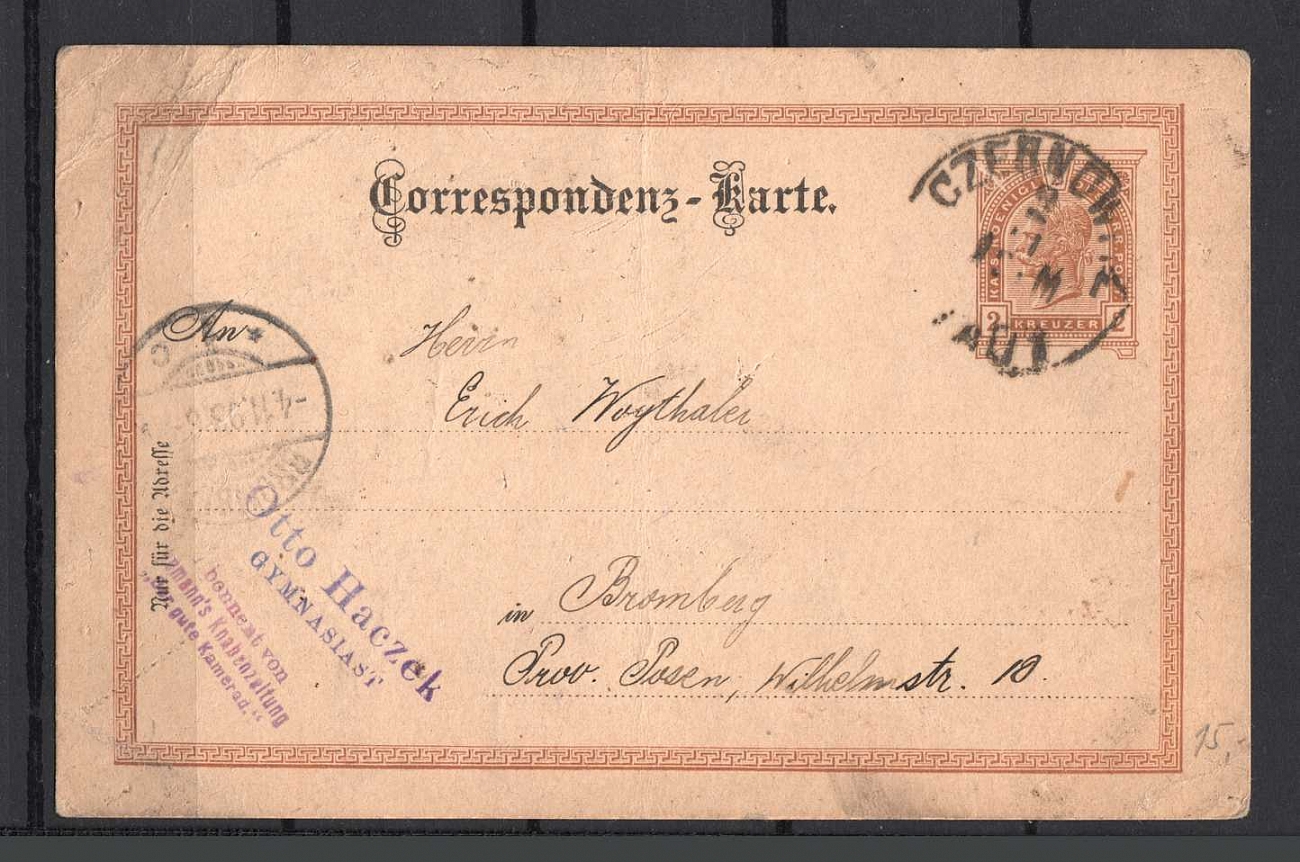 Correspondenz-Karte.
CZERNOWITZ
KREUZER
2 2
An
Herrn
Erich Woythaler
in Bromberg
Prov. Posen, Wilhelmstr. 18.
Nur für die Adresse
-4.11.93
Otto Haczek
GYMNASIAST
Abonnent von
Spemann's Knabenzeitung
„Der gute Kamerad.“
15,-